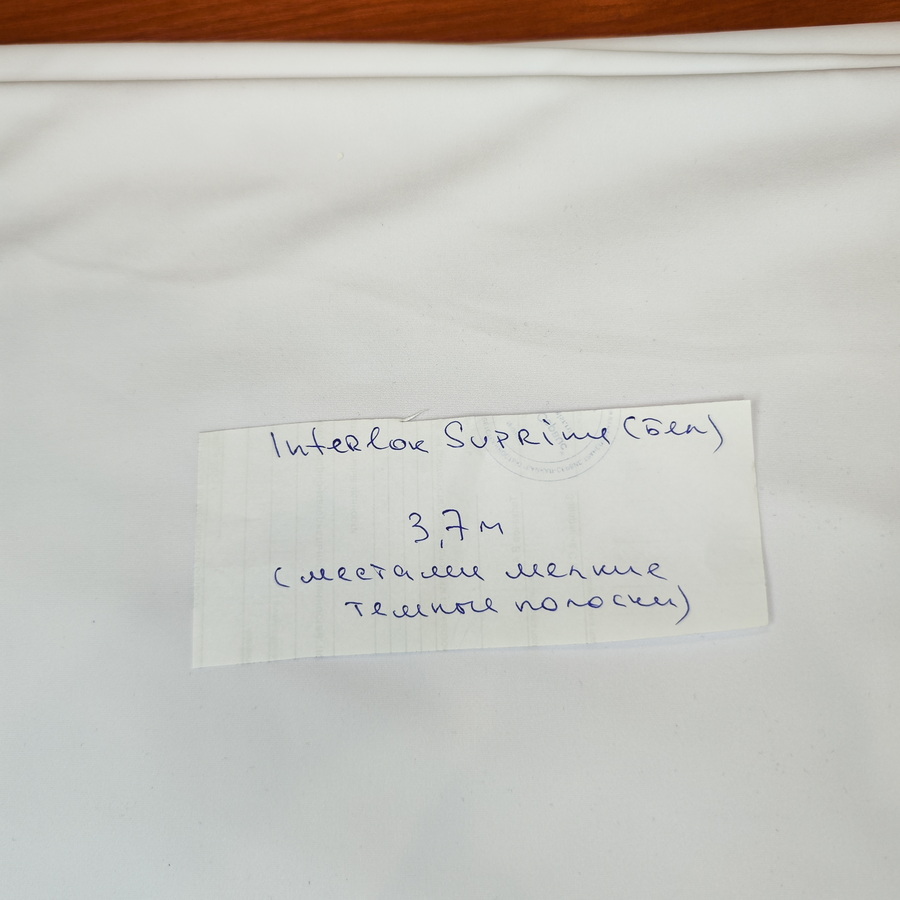 Interlok Suprime (бел)
3,7 м
(местами мелкие
темные полоски)